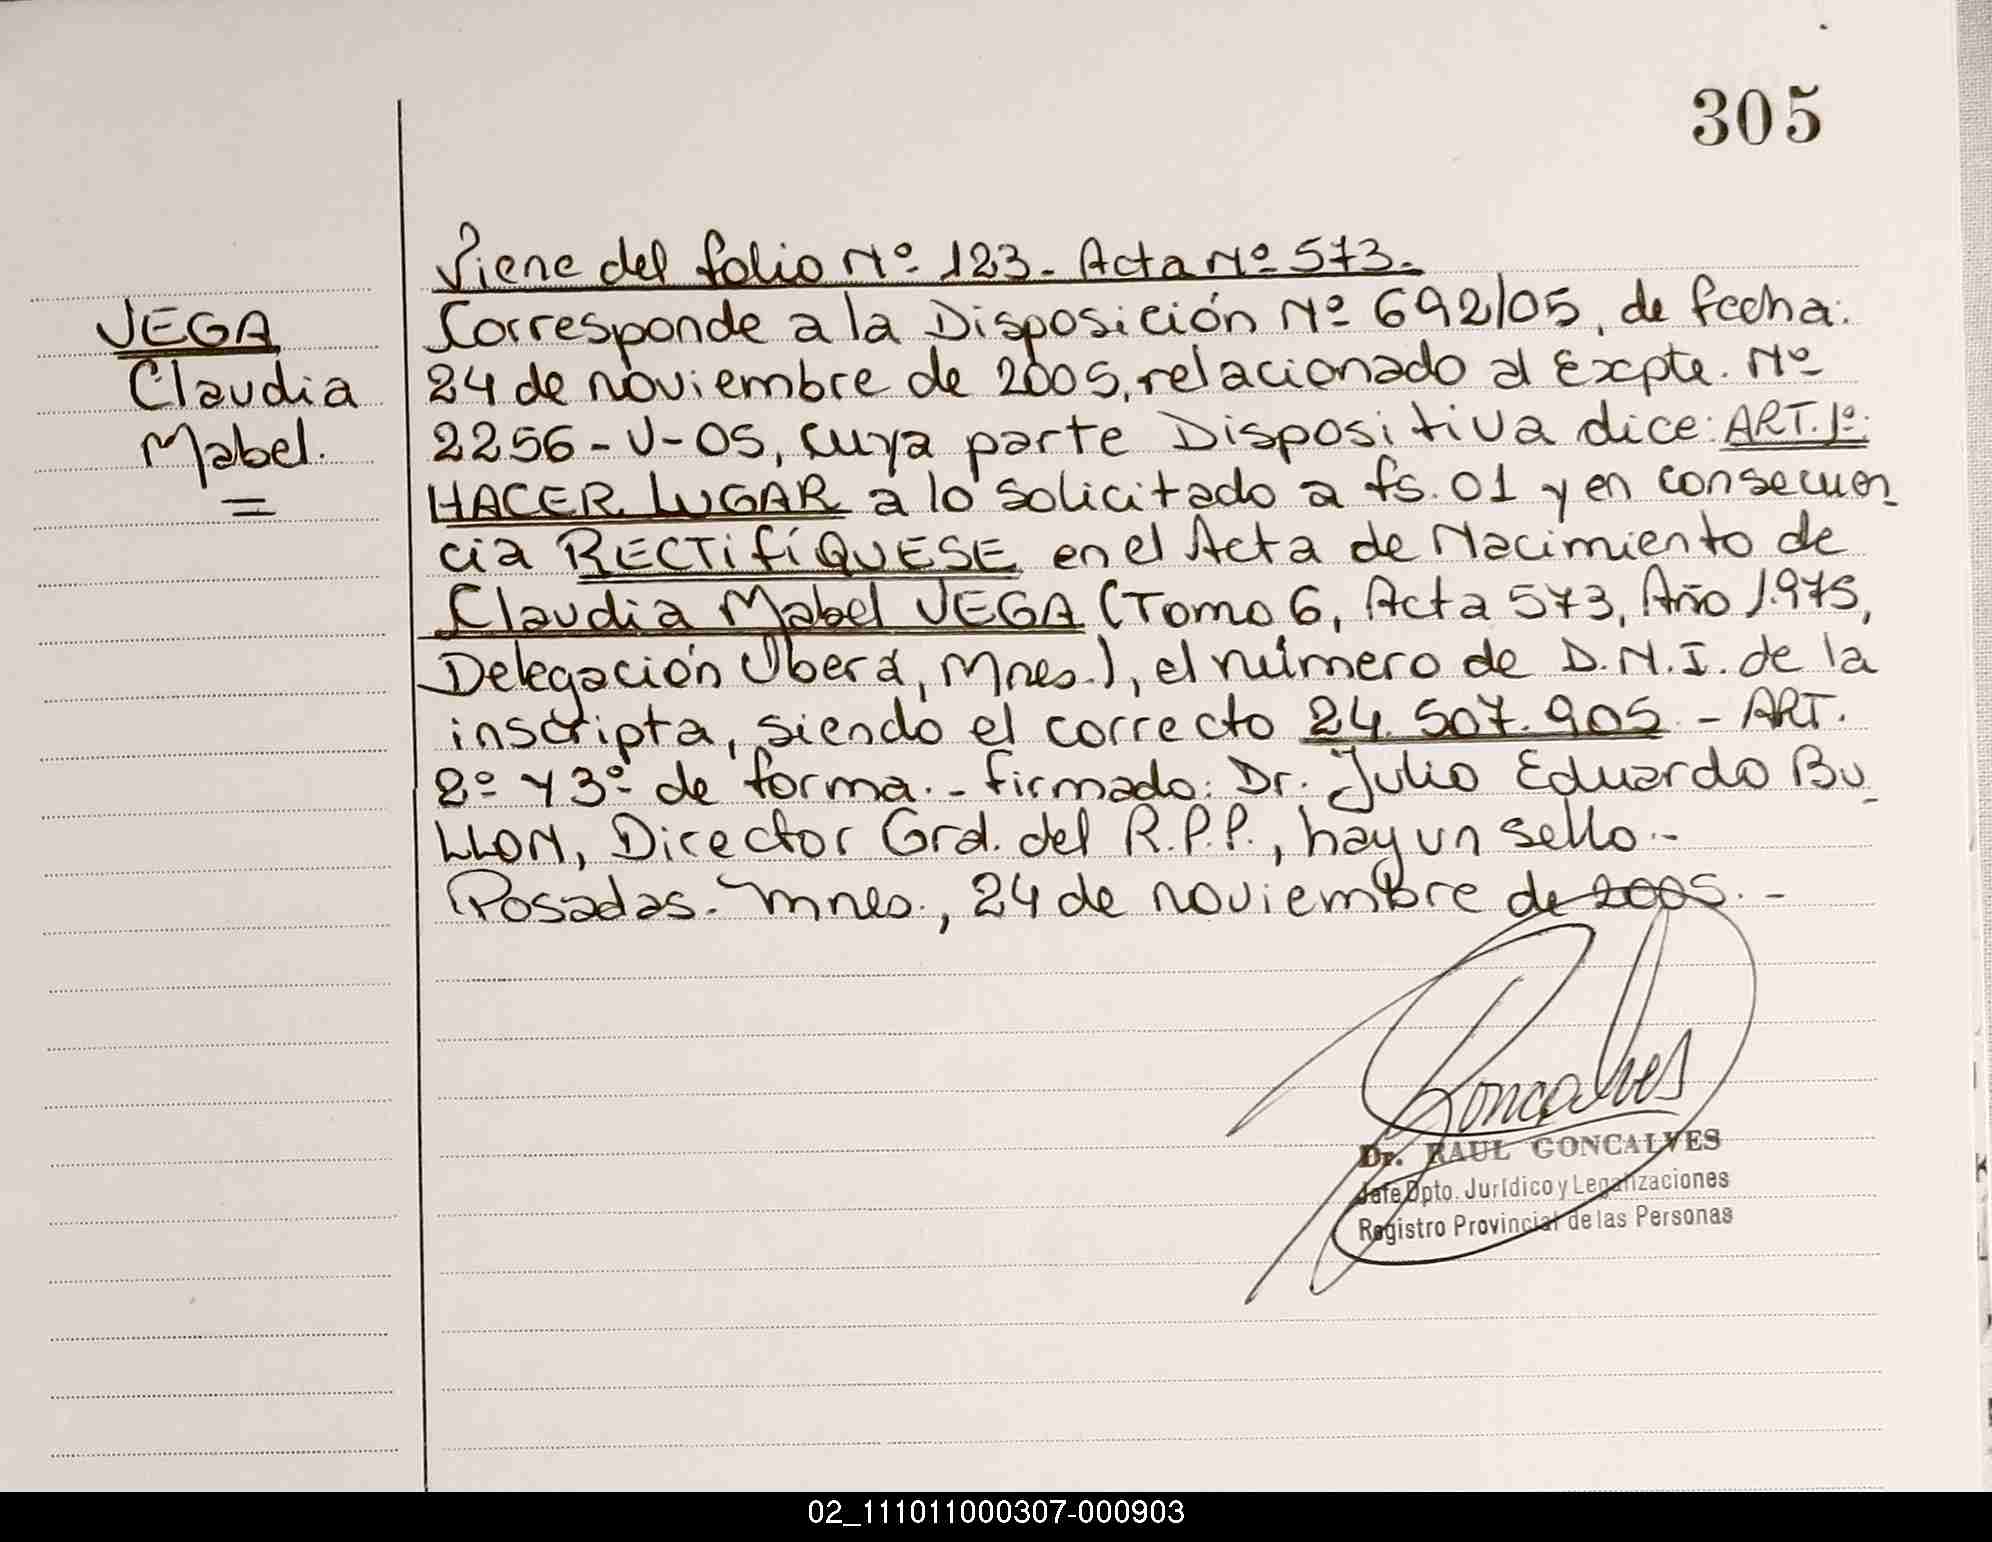 305
Viene del folio Nº 123 - Acta Nº 573.-
VEGA
Claudia
Mabel.
=
Corresponde a la Disposición Nº 692/05, de fecha:
24 de noviembre de 2005, relacionado al Expte. Nº
2256-V-05, cuya parte Dispositiva dice: ART. 1º:
HACER LUGAR a lo solicitado a fs. 01 y en consecuen_
cia RECTIFÍQUESE en el Acta de Nacimiento de
Claudia Mabel VEGA (Tomo 6, Acta 573, Año 1.975,
Delegación Oberá, Mnes.), el número de D.N.I. de la
inscripta, siendo el correcto 24.507.905 - ART.
2º y 3º de forma. - firmado: Dr. Julio Eduardo BU_
LLON, Director Gral. del R.P.P., hay un sello.-
Posadas. Mnes., 24 de noviembre de 2005. -
Goncalves
Dr. RAUL GONCALVES
Jefe Dpto. Jurídico y Legalizaciones
Registro Provincial de las Personas
02_111011000307-000903